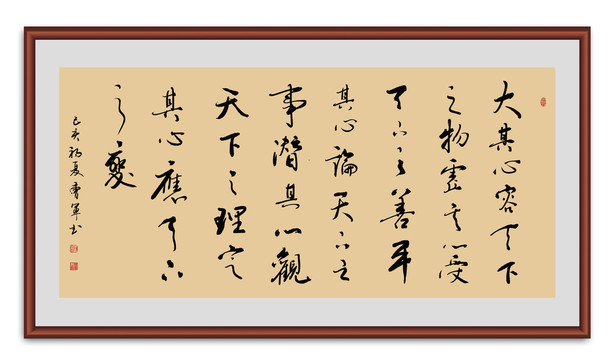 大其心容天下
之物虚其心受
天下之善平
其心論天下之
事潛其心觀
天下之理定
其心應天下
之變
己亥初夏曹軍书